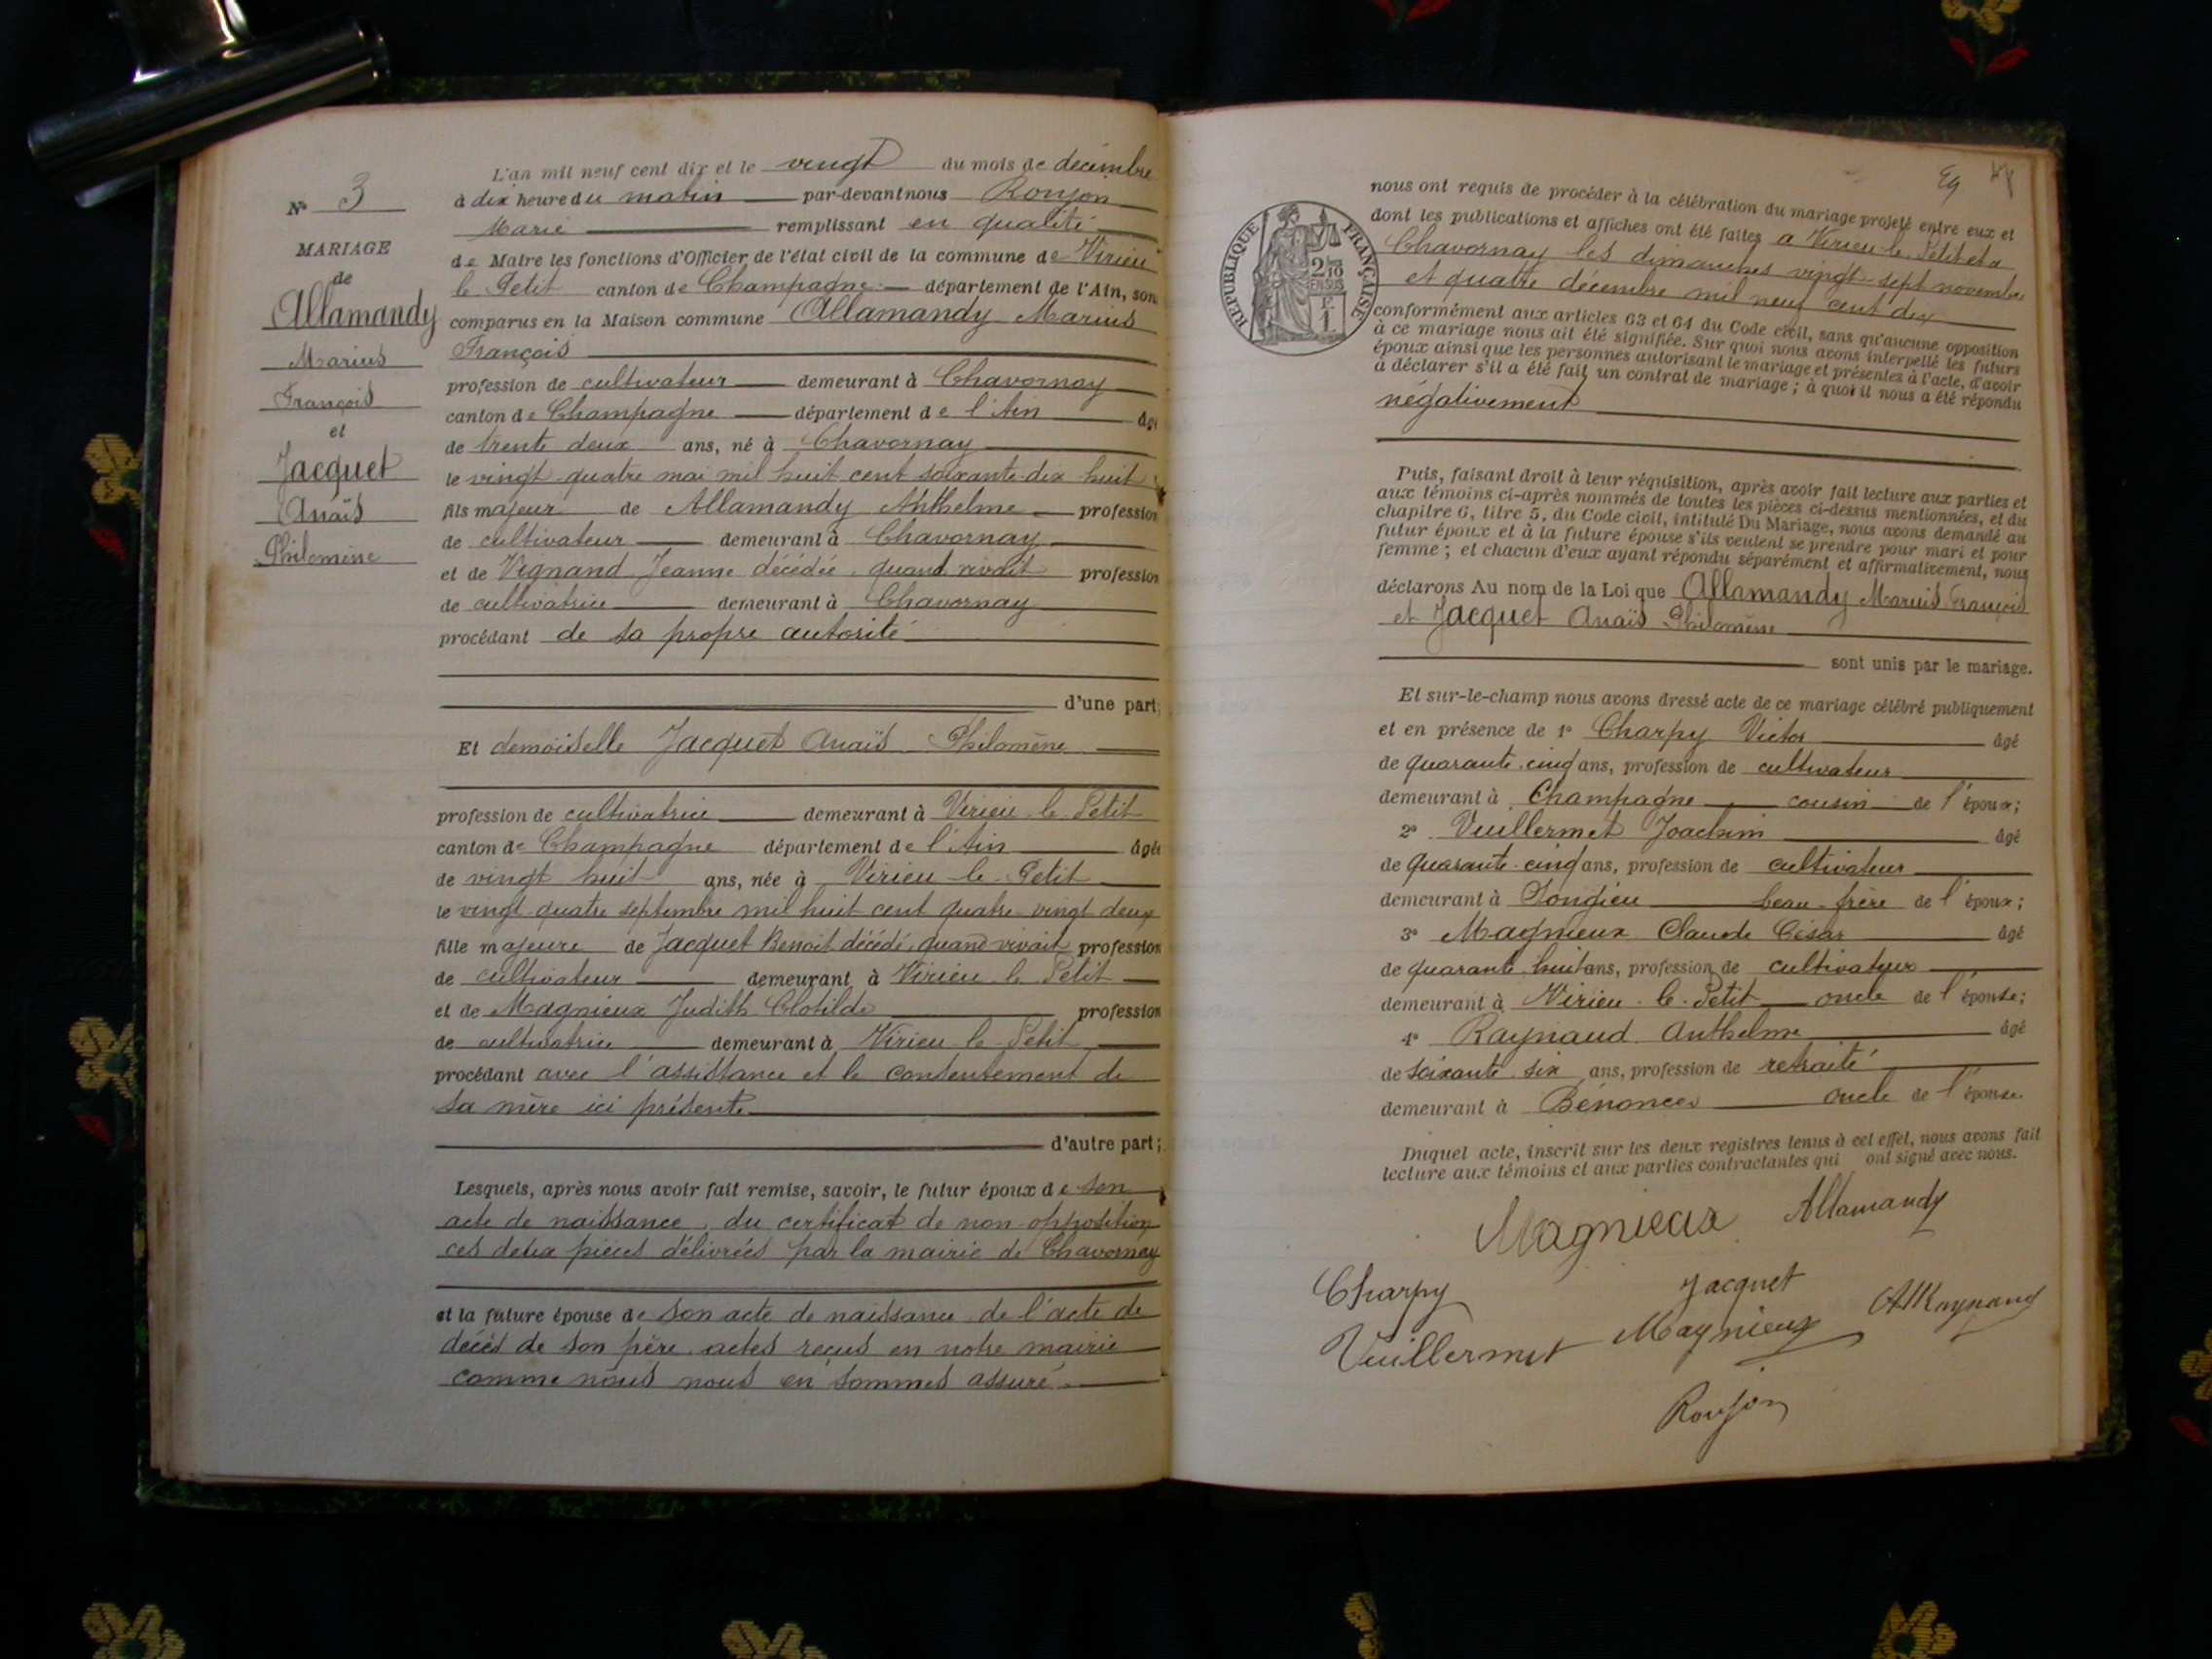 N° 3
MARIAGE
de
Allamandy
Marius
François
et
Jacquet
Anaïs
Philomène
L'an mil neuf cent dix et le vingt du mois de décembre
à dix heure du matin par-devant nous Roujon
Marie remplissant en qualité
de Maire les fonctions d'Officier de l'état civil de la commune de Virieu
le Petit canton de Champagne département de l'Ain, son
comparus en la Maison commune Allamandy Marius
François
profession de cultivateur demeurant à Chavornay
canton de Champagne département de l'Ain âgé
de trente deux ans, né à Chavornay
le vingt quatre mai mil huit cent soixante dix huit
fils majeur de Allamandy Anthelme profession
de cultivateur demeurant à Chavornay
et de Vignand Jeanne décédée, quand vivait profession
de cultivatrice demeurant à Chavornay
procédant de sa propre autorité
d'une part;
Et demoiselle Jacquet Anaïs Philomène
profession de cultivatrice demeurant à Virieu le Petit
canton de Champagne département de l'Ain âgée
de vingt huit ans, née à Virieu le Petit
le vingt quatre septembre mil huit cent quatre vingt deux
fille majeure de Jacquet Benoit décédé, quand vivait profession
de cultivateur demeurant à Virieu le Petit
et de Magnieux Judith Clotilde profession
de cultivatrice demeurant à Virieu le Petit
procédant avec l'assistance et le consentement de
sa mère ici présente
d'autre part;
Lesquels, après nous avoir fait remise, savoir, le futur époux de son
acte de naissance, du certificat de non opposition
ces deux pièces délivrées par la mairie de Chavornay
et la future épouse de son acte de naissance de l'acte de
décès de son père actes reçus en notre mairie
comme nous nous en sommes assuré.
RÉPUBLIQUE FRANÇAISE
2/10
EN SUS
F.
1
nous ont requis de procéder à la célébration du mariage projeté entre eux et
dont les publications et affiches ont été faites a Virieu le Petit et a
Chavornay les dimanches vingt sept novembre
et quatre décembre mil neuf cent dix
conformément aux articles 63 et 64 du Code civil, sans qu'aucune opposition
à ce mariage nous ait été signifiée. Sur quoi nous avons interpellé les futurs
époux ainsi que les personnes autorisant le mariage et présentes à l'acte, d'avoir
à déclarer s'il a été fait un contrat de mariage; à quoi il nous a été répondu
négativement
Puis, faisant droit à leur réquisition, après avoir fait lecture aux parties et
aux témoins ci-après nommés de toutes les pièces ci-dessus mentionnées, et du
chapitre 6, titre 5, du Code civil, intitulé Du Mariage, nous avons demandé au
futur époux et à la future épouse s'ils veulent se prendre pour mari et pour
femme; et chacun d'eux ayant répondu séparément et affirmativement, nous
déclarons Au nom de la Loi que Allamandy Marius François
et Jacquet Anaïs Philomène
sont unis par le mariage.
Et sur-le-champ nous avons dressé acte de ce mariage célébré publiquement
et en présence de 1° Charpy Victor âgé
de quarante cinq ans, profession de cultivateur
demeurant à Champagne cousin de l'époux;
2° Vuillermet Joachim âgé
de quarante cinq ans, profession de cultivateur
demeurant à Songieu beau-frère de l'époux;
3° Magnieux Claude César âgé
de quarante huit ans, profession de cultivateur
demeurant à Virieu le Petit oncle de l'épouse;
4° Raynaud Anthelme âgé
de soixante six ans, profession de retraité
demeurant à Bénonces oncle de l'épouse.
Duquel acte, inscrit sur les deux registres tenus à cet effet, nous avons fait
lecture aux témoins et aux parties contractantes qui ont signé avec nous.
Magnieux Allamandy
Charpy Jacquet
Vuillermet Magnieux A Raynaud
Roujon